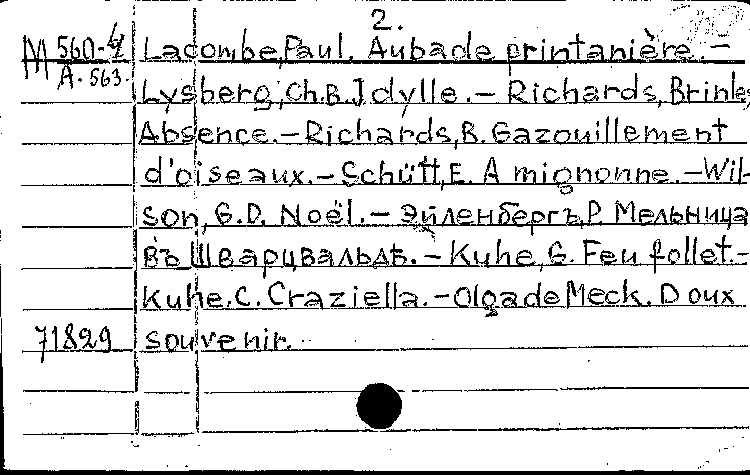 2.
M 560-4 Lacombe, Paul. Aubade printanière.-
A.563.
Lysberg, Ch.B. Idylle.- Richards, Brinley
Absence.-Richards, B. Gazouillement
d'oiseaux.- Schütt, E. A mignonne.-Wil-
son, G.D. Noël.- Эйленбергъ, Р. Мельница
въ Шварцвальдѣ.- Kuhe, G. Feu follet.-
Kuhe, C. Craziella.-Olga de Meck. Doux
71829 souvenir.